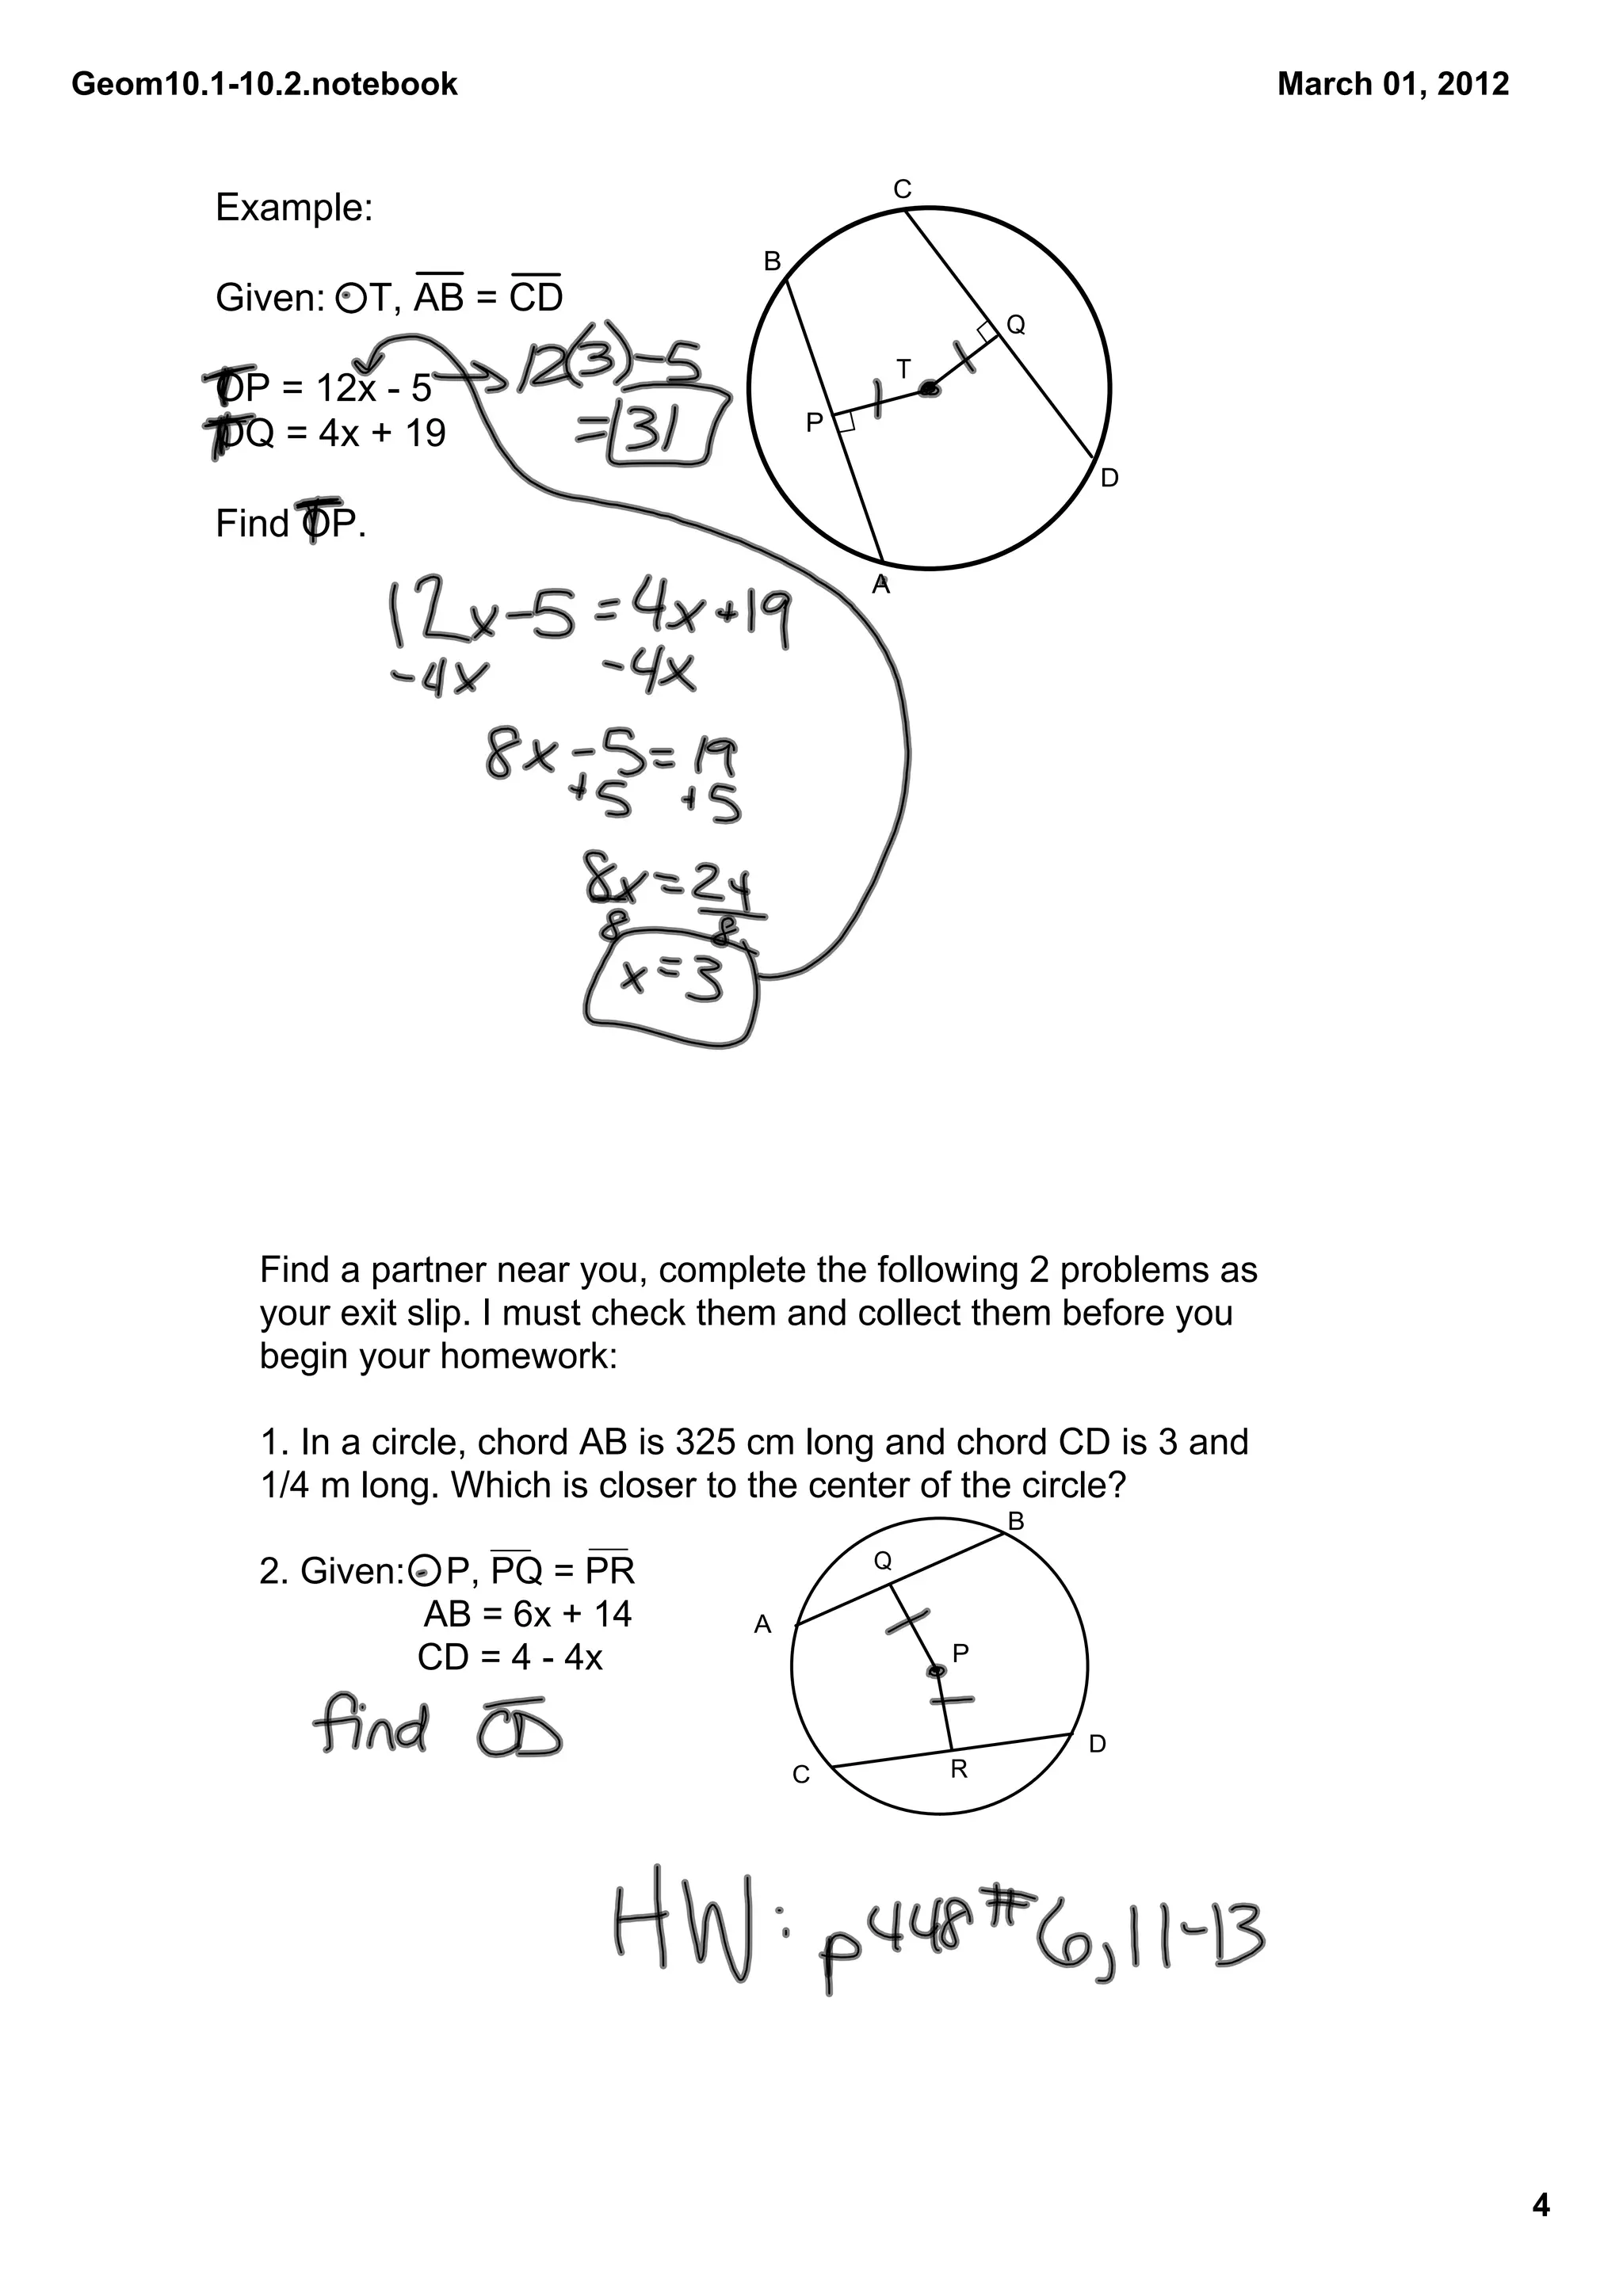 Geom10.1-10.2.notebook
March 01, 2012
Example:
Given: ⊙T, AB = CD
TP = 12x - 5 → 12(3)-5
TQ = 4x + 19 = 31
Find TP.
C
B
Q
T
P
D
A
12x-5=4x+19
-4x -4x
8x-5=19
+5 +5
8x=24
8 8
x=3
Find a partner near you, complete the following 2 problems as
your exit slip. I must check them and collect them before you
begin your homework:
1. In a circle, chord AB is 325 cm long and chord CD is 3 and
1/4 m long. Which is closer to the center of the circle?
2. Given: ⊙P, PQ = PR
AB = 6x + 14
CD = 4 - 4x
find CD
B
Q
A
P
D
R
C
HW: p448 #6, 11-13
4